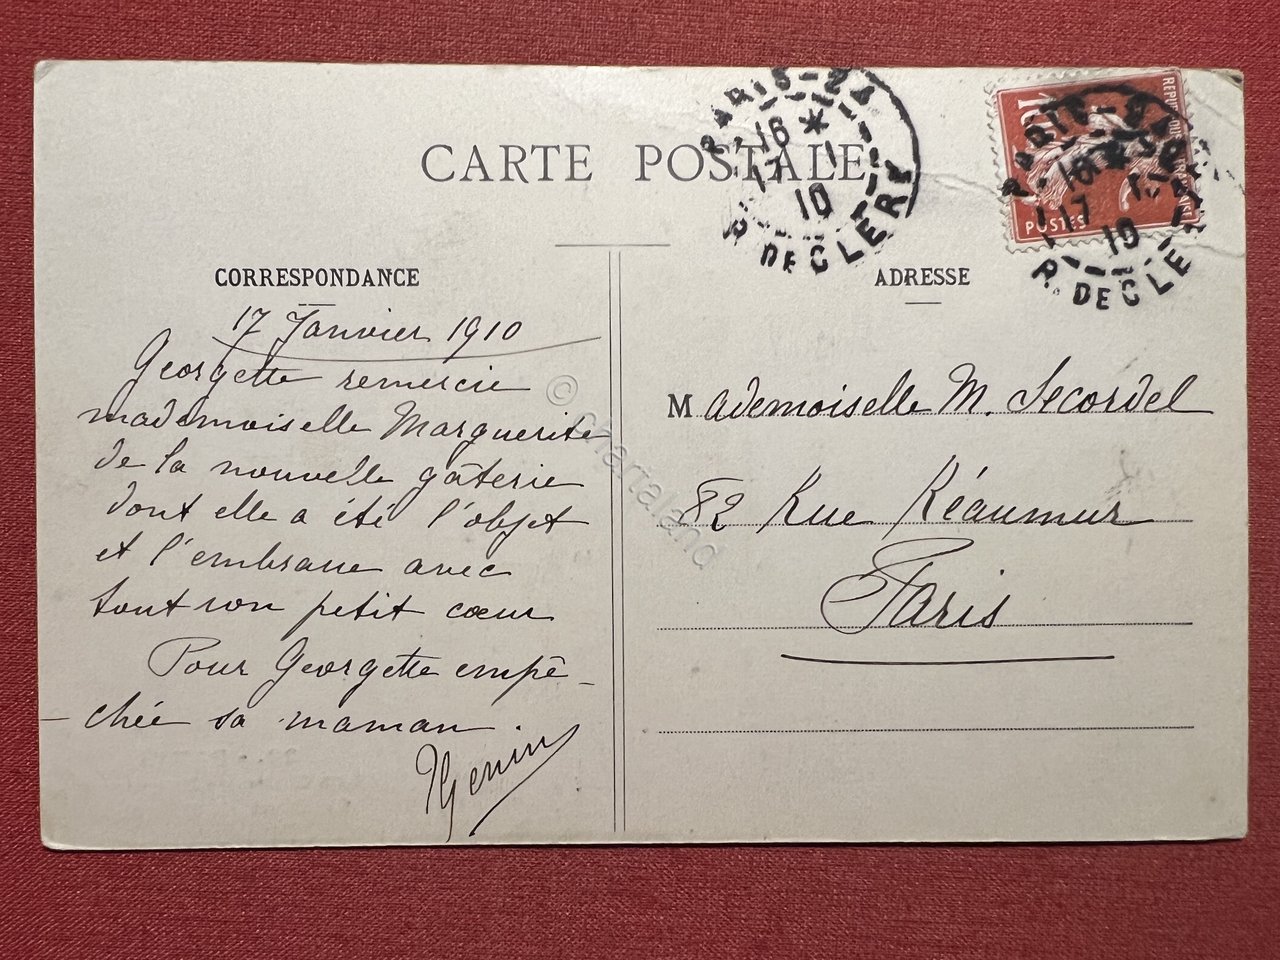 CARTE POSTALE
PARIS-24
16 *
17 1
10
R. DE CLERY
REPUBLIQUE FRANÇAISE
10
POSTES
PARIS-
16 *
17 1
10
R. DE CLE
CORRESPONDANCE
17 Janvier 1910
Georgette remercie
mademoiselle Marguerite
de la nouvelle gâterie
dont elle a été l'objet
et l'embrasse avec
tout son petit cœur
Pour Georgette empê-
-chée sa maman
ADRESSE
Mademoiselle M. Secordel
82 Rue Réaumur
Paris
© Chartaland